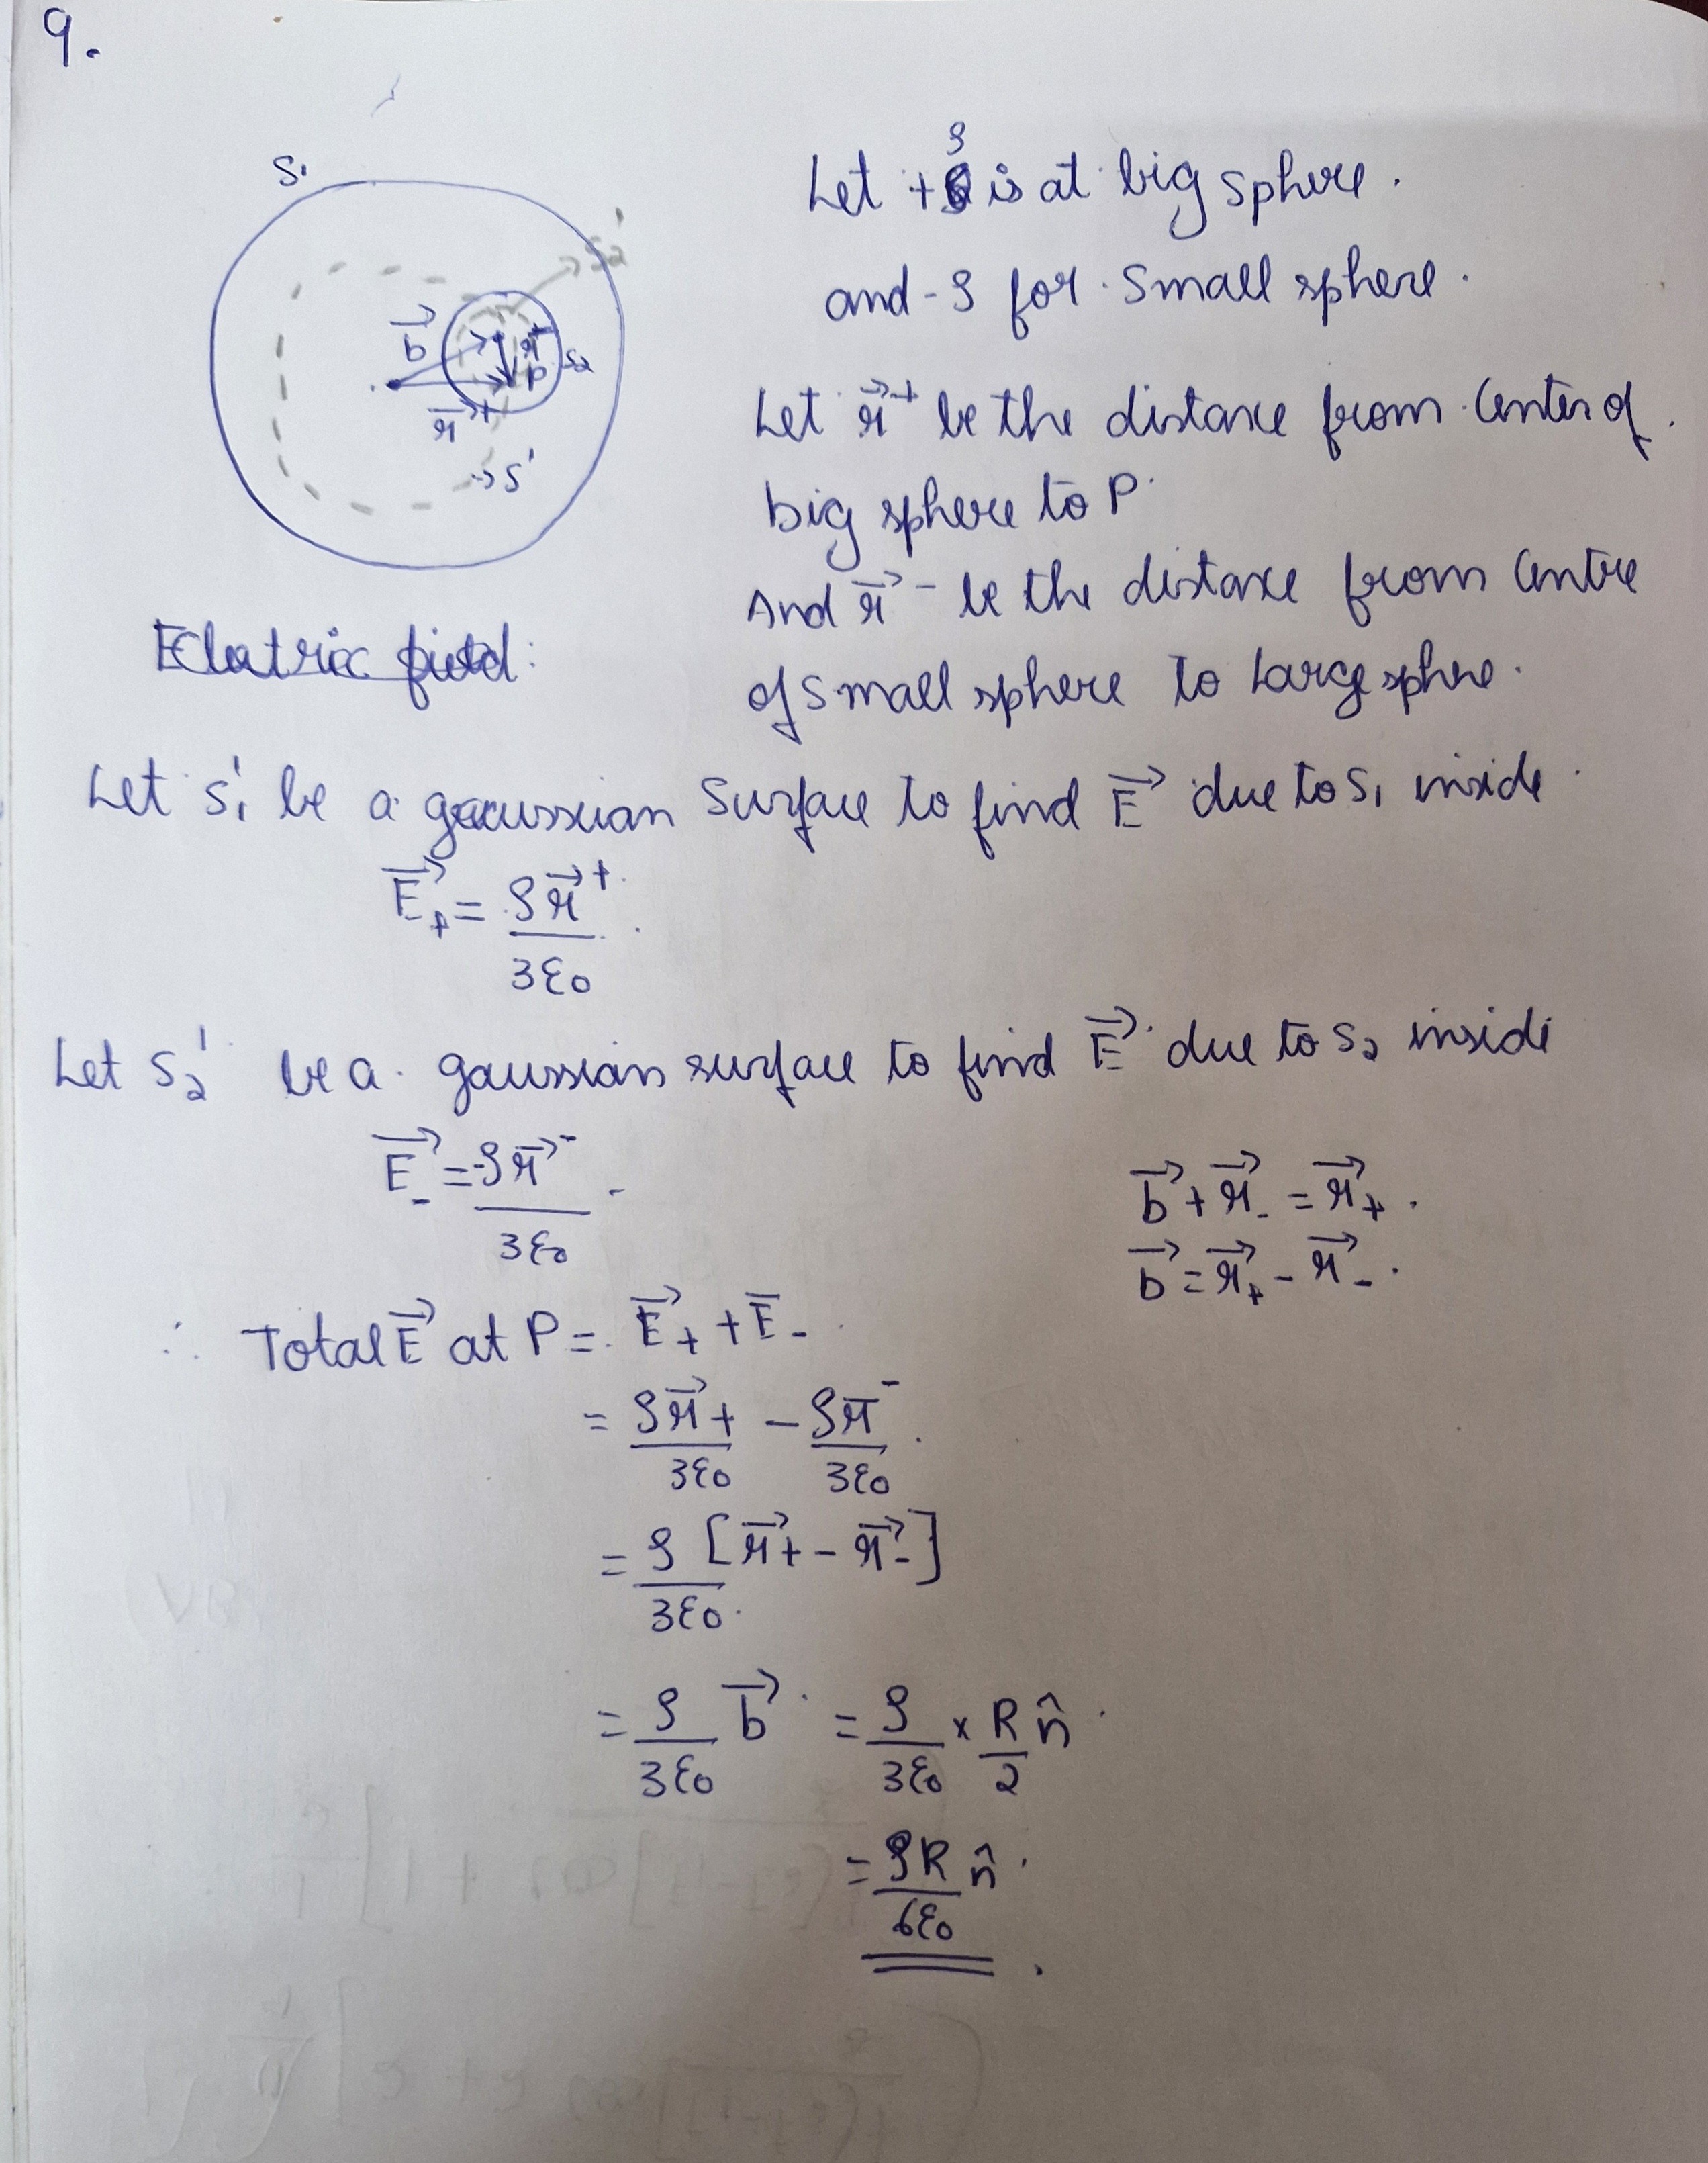 9.
S₁
Let +ρ is at big sphere.
and -ρ for small sphere.
S₂'
b⃗
r⃗⁻
P
S₂
r⃗⁺
→S'
Let r⃗⁺ be the distance from center of
big sphere to P.
And r⃗⁻ be the distance from centre
of small sphere to Large sphere.
Electric field:
Let S₁' be a gaussian surface to find E⃗ due to S₁ inside.
E⃗₊ = ρr⃗⁺ / 3ε₀
Let S₂' be a gaussian surface to find E⃗ due to S₂ inside
E⃗₋ = -ρr⃗⁻ / 3ε₀
b⃗ + r⃗₋ = r⃗₊.
b⃗ = r⃗₊ - r⃗₋.
∴ Total E⃗ at P = E⃗₊ + E̅₋
= ρr⃗₊ / 3ε₀ - ρr̅⁻ / 3ε₀.
= ρ / 3ε₀ [r⃗₊ - r⃗₋]
= ρ / 3ε₀ b⃗ = ρ / 3ε₀ × R / 2 n̂.
= ρR / 6ε₀ n̂.